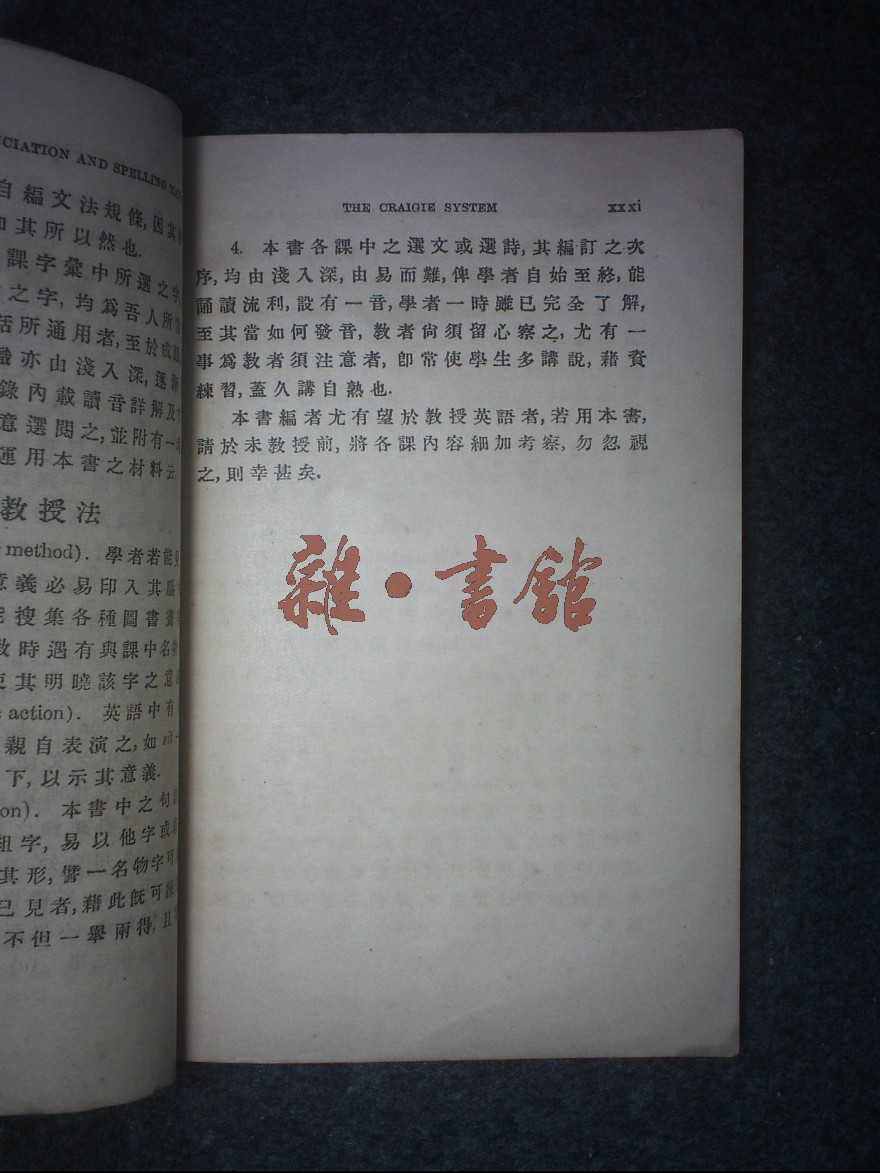 CIATION AND SPELLING
自編文法規條,因其
其所以然也.
課字彙中所選之字,
之字,均爲吾人所
所通用者,至於成
亦由淺入深,逐
錄內載讀音詳解及
意選閱之,並附有一
運用本書之材料云
教授法
method). 學者若能
意義必易印入其腦
搜集各種圖書畫
時遇有與課中名物
其明曉該字之意
action). 英語中有
親自表演之,如 sit
下,以示其意義.
on). 本書中之句
組字,易以他字或
其形,譬一名物字可
已見者,藉此旣可
不但一舉兩得,且
THE CRAIGIE SYSTEM xxxi
4. 本書各課中之選文或選詩,其編訂之次
序,均由淺入深,由易而難,俾學者自始至終,能
誦讀流利,設有一音,學者一時雖已完全了解,
至其當如何發音,教者尙須留心察之,尤有一
事爲教者須注意者,卽常使學生多講說,藉資
練習,蓋久講自熟也.
本書編者尤有望於教授英語者,若用本書,
請於未教授前,將各課內容細加考察,勿忽視
之,則幸甚矣.
雜·書館